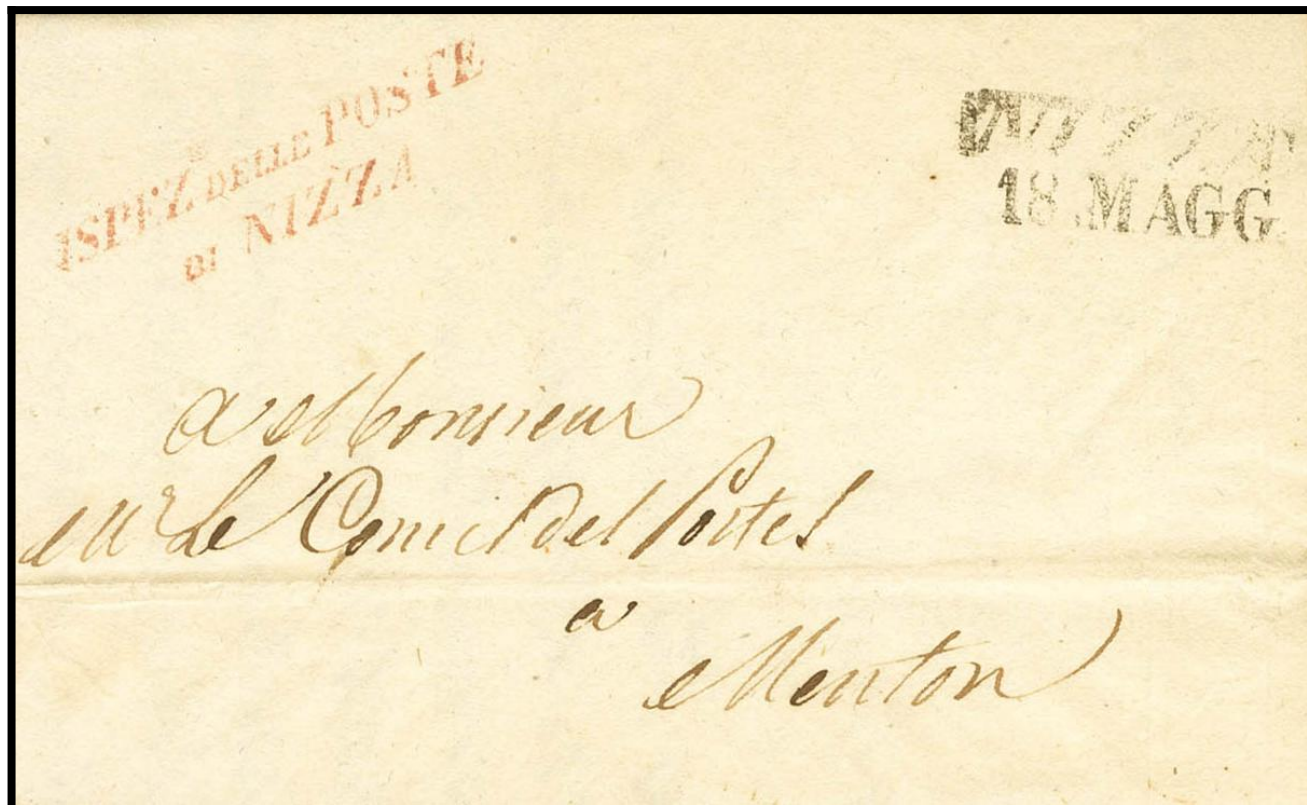 ISPEZ DELLE POSTE
DI NIZZA
NIZZA
18 MAGG
a Monsieur
Mr Le Comis des Postes
a
Menton